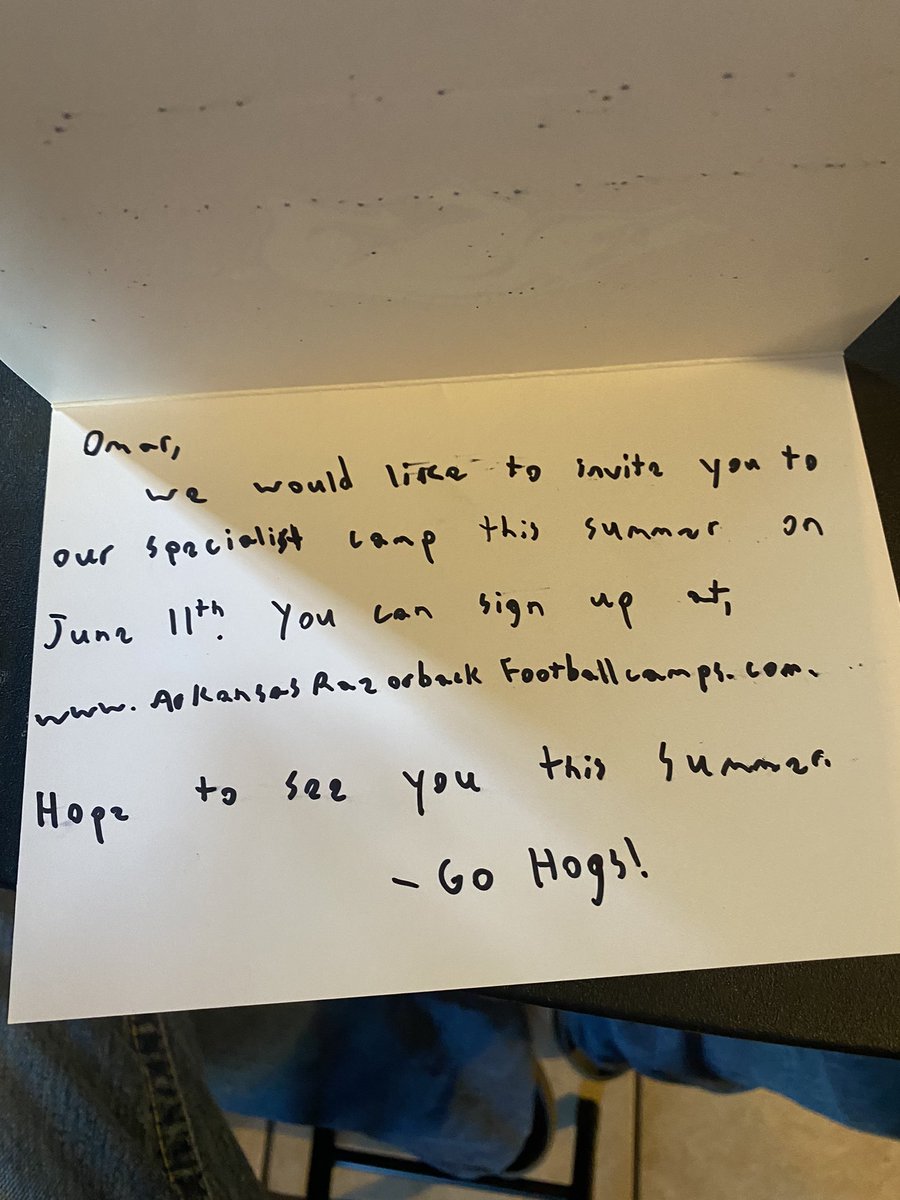 Omar,
we would like to invite you to
our specialist camp this summer on
June 11th. You can sign up at,
www.ArkansasRazorbackFootballcamps.com.
Hope to see you this summer.
- Go Hogs!